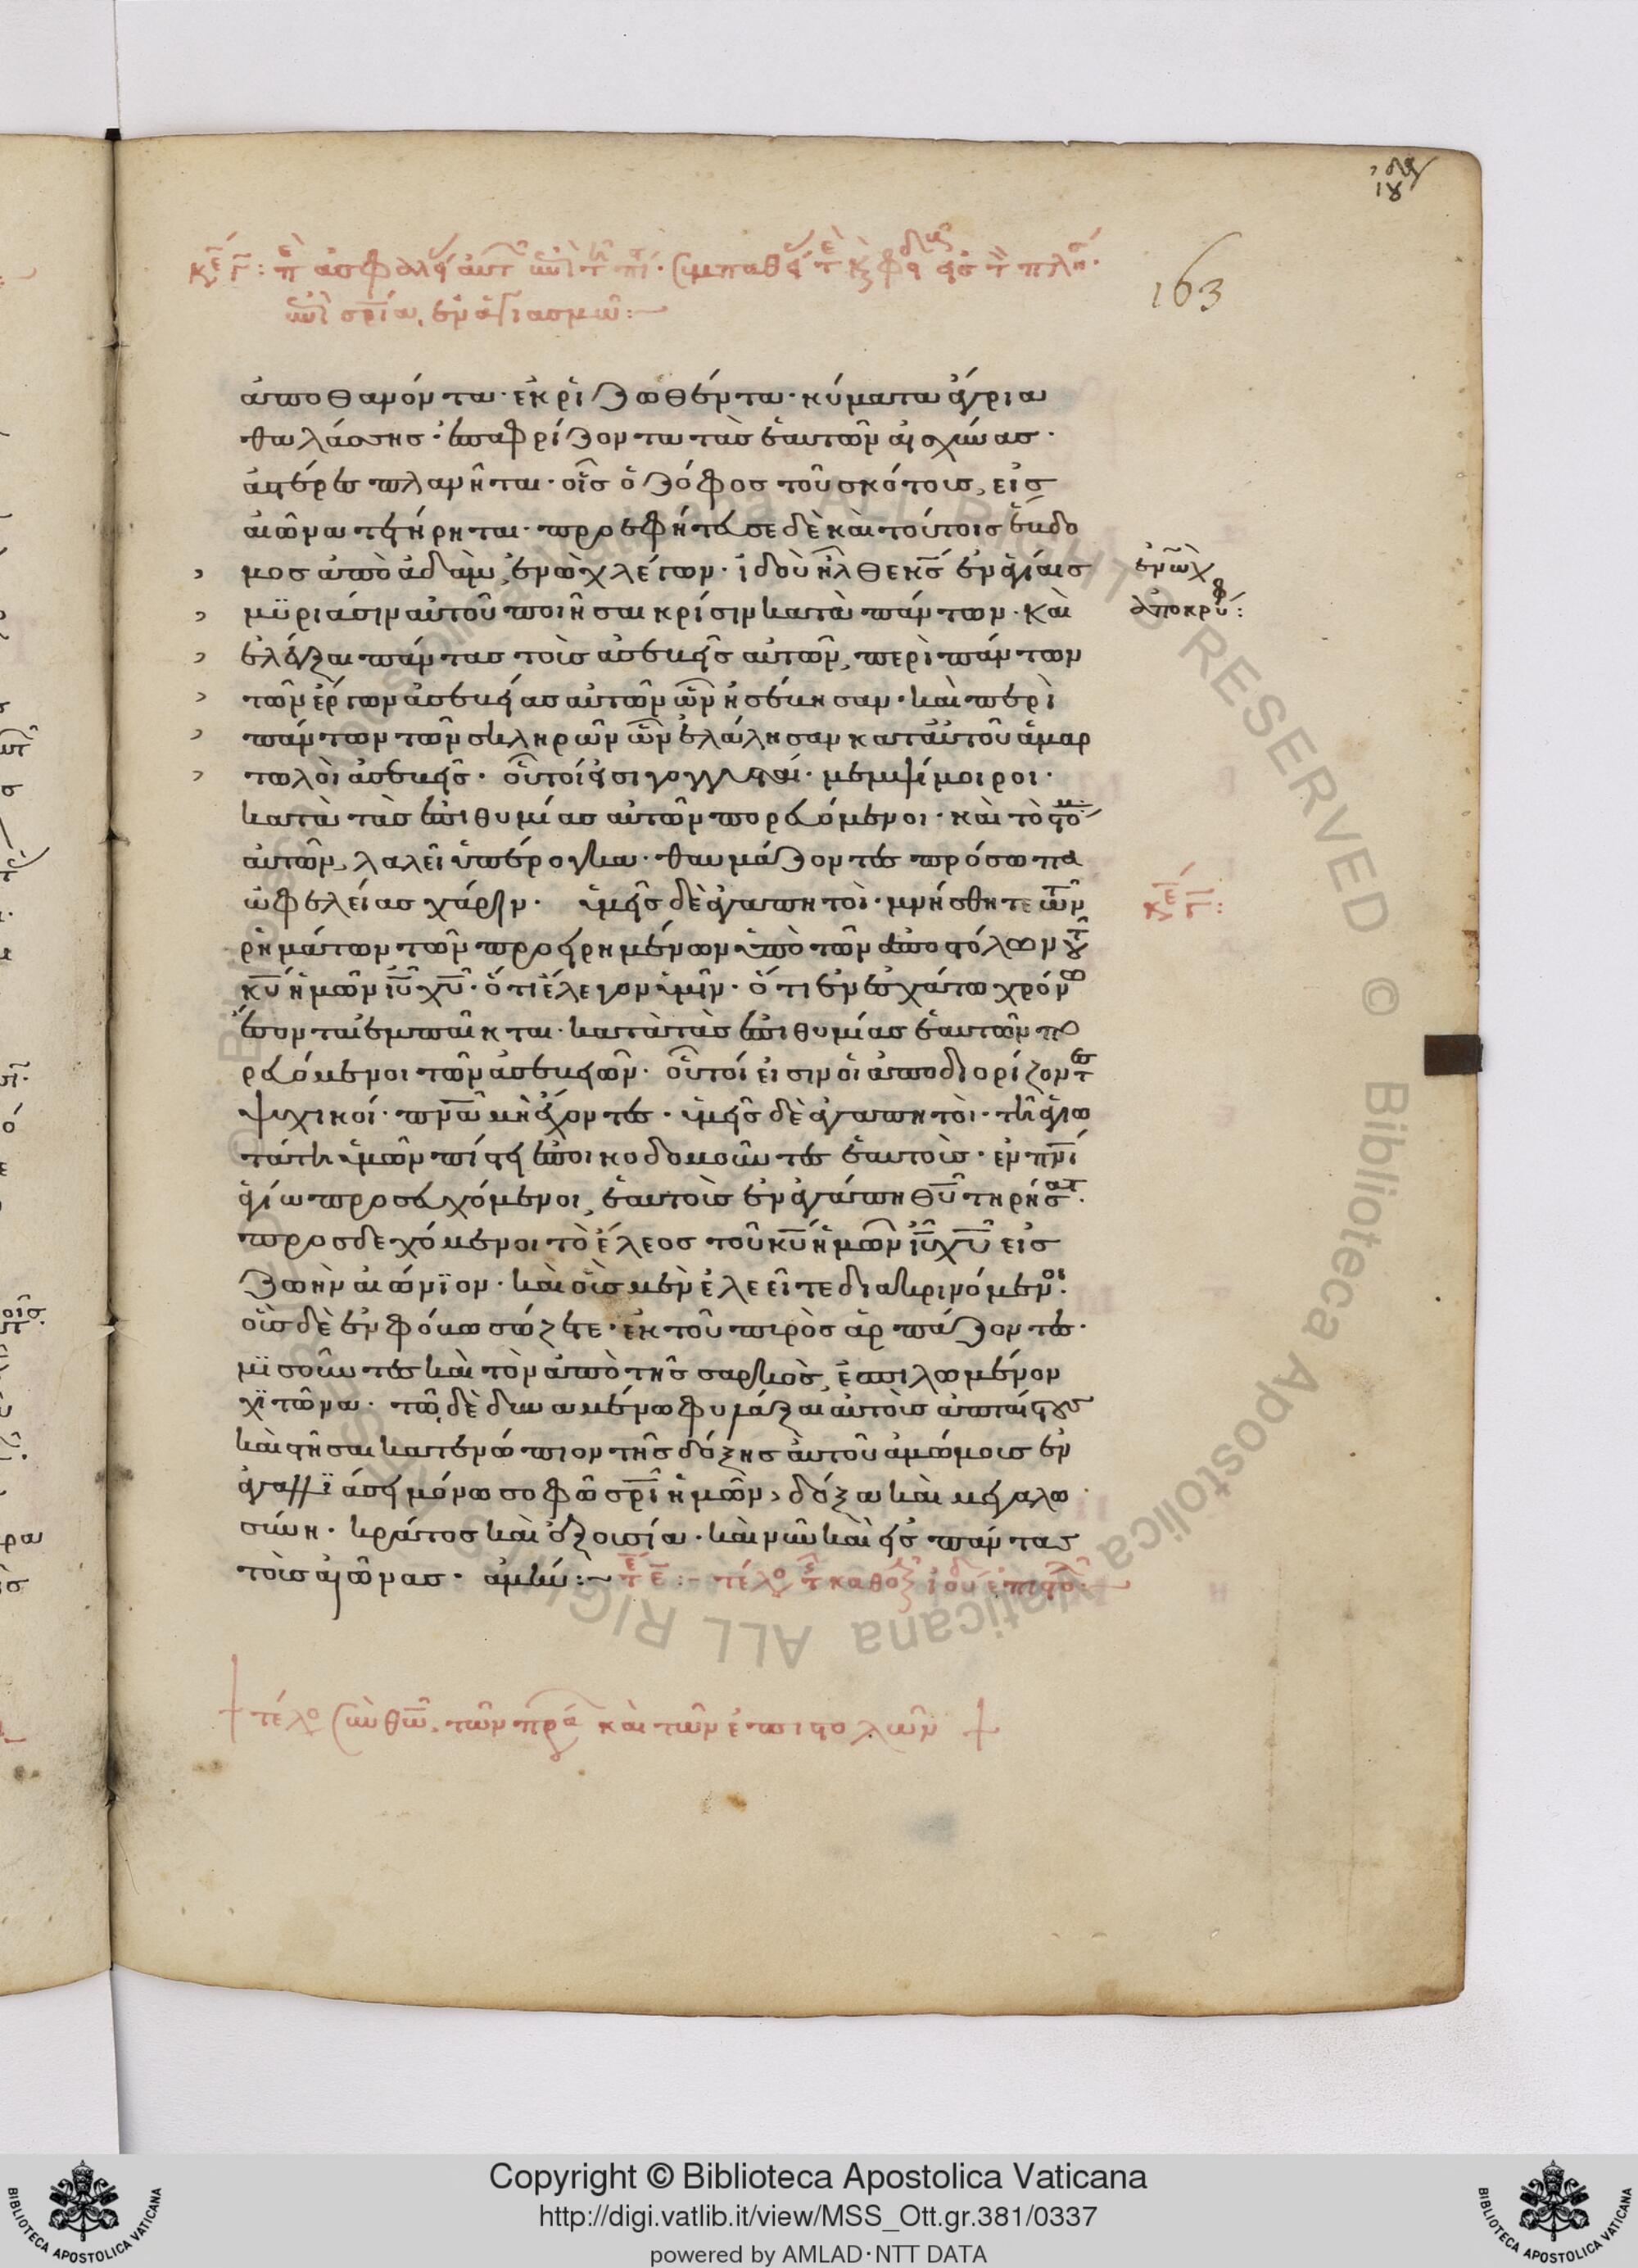 163
ἀποθανόντα· ἐκριζωθέντα· κύματα ἄγρια
θαλάσσης· ἐπαφρίζοντα τὰς ἑαυτῶν αἰσχύνας·
ἀστέρες πλανῆται· οἷς ὁ ζόφος τοῦ σκότους, εἰς
αἰῶνα τετήρηται· προεφήτευσε δὲ καὶ τούτοις ἕβδο
μος ἀπὸ ἀδὰμ, ἐνὼχ λέγων· ἰδοὺ ἦλθε κ̅ς̅ ἐν ἁγίαις
ἐνὼχ
μϋριάσιν αὐτοῦ ποιῆσαι κρίσιν κατὰ πάντων· καὶ
ἀποκρύφ:
ἐλέγξαι πάντας τοὺς ἀσεβεῖς αὐτῶν, περὶ πάντων
τῶν ἔργων ἀσεβείας αὐτῶν ὧν ἠσέβησαν· καὶ περὶ
πάντων τῶν σκληρῶν ὧν ἐλάλησαν κατ αὐτοῦ ἁμαρ
τωλοὶ ἀσεβεῖς· οὗτοί εἰσι γογγυσταί· μεμψίμοιροι·
κατὰ τὰς ἐπιθυμίας αὐτῶν πορευόμενοι· καὶ τὸ στό
αὐτῶν, λαλεῖ ὑπέρογκα· θαυμάζοντες πρόσωπα
ὠφελείας χάριν· ὑμεῖς δὲ ἀγαπητοὶ· μνήσθητε τῶν
ῥημάτων τῶν προειρημένων ὑπὸ τῶν ἀποστόλων τοῦ
κ̅υ̅ ἡμῶν ι̅υ̅ χ̅υ̅· ὅτι ἔλεγον ὑμῖν· ὅτι ἐν ἐσχάτω χρόνω
ἔσονται ἐμπαῖκται· κατὰ τὰς ἐπιθυμίας ἑαυτῶν πο
ρευόμενοι τῶν ἀσεβειῶν· οὗτοί εἰσιν οἱ ἀποδιορίζοντες
ψυχικοί· π̅ν̅α̅ μὴ ἔχοντες· ὑμεῖς δὲ ἀγαπητοὶ· τῆ ἁγιω
τάτη ὑμῶν πίστει ἐποικοδομοῦντες ἑαυτοὺς· ἐν π̅ν̅ι̅
ἁγίω προσευχόμενοι, ἑαυτοὺς ἐν ἀγάπη θ̅υ̅ τηρήσατ·
προσδεχόμενοι τὸ ἔλεος τοῦ κ̅υ̅ ἡμῶν ι̅υ̅ χ̅υ̅ εἰς
ζωὴν αἰώνϊον· καὶ οὓς μὲν ἐλεεῖτε διακρινόμενοι·
οὓς δὲ ἐν φόβω σώζετε· ἐκ τοῦ πυρὸς ἁρπάζοντες·
μϊσοῦντες καὶ τὸν ἀπὸ τῆς σαρκὸς, ἐσπιλωμένον
χϊτῶνα· τῶ, δὲ δυναμένω φυλάξαι αὐτοὺς ἀπταίστους
καὶ στῆσαι κατενώπιον τῆς δόξης αὐτοῦ ἀμώμους ἐν
ἀγαλλϊάσει μόνω σοφῶ σ̅ρ̅ι̅ ἡμῶν, δόξα καὶ μεγαλω
σύνη· κράτος καὶ ἐξουσία· καὶ νῦν καὶ εἰς πάντας
τοὺς αἰῶνας· ἀμήν:~
τέλο σὺν θῶ, τῶν πρά καὶ τῶν ἐπιστολῶν
Copyright © Biblioteca Apostolica Vaticana
http://digi.vatlib.it/view/MSS_Ott.gr.381/0337
powered by AMLAD·NTT DATA